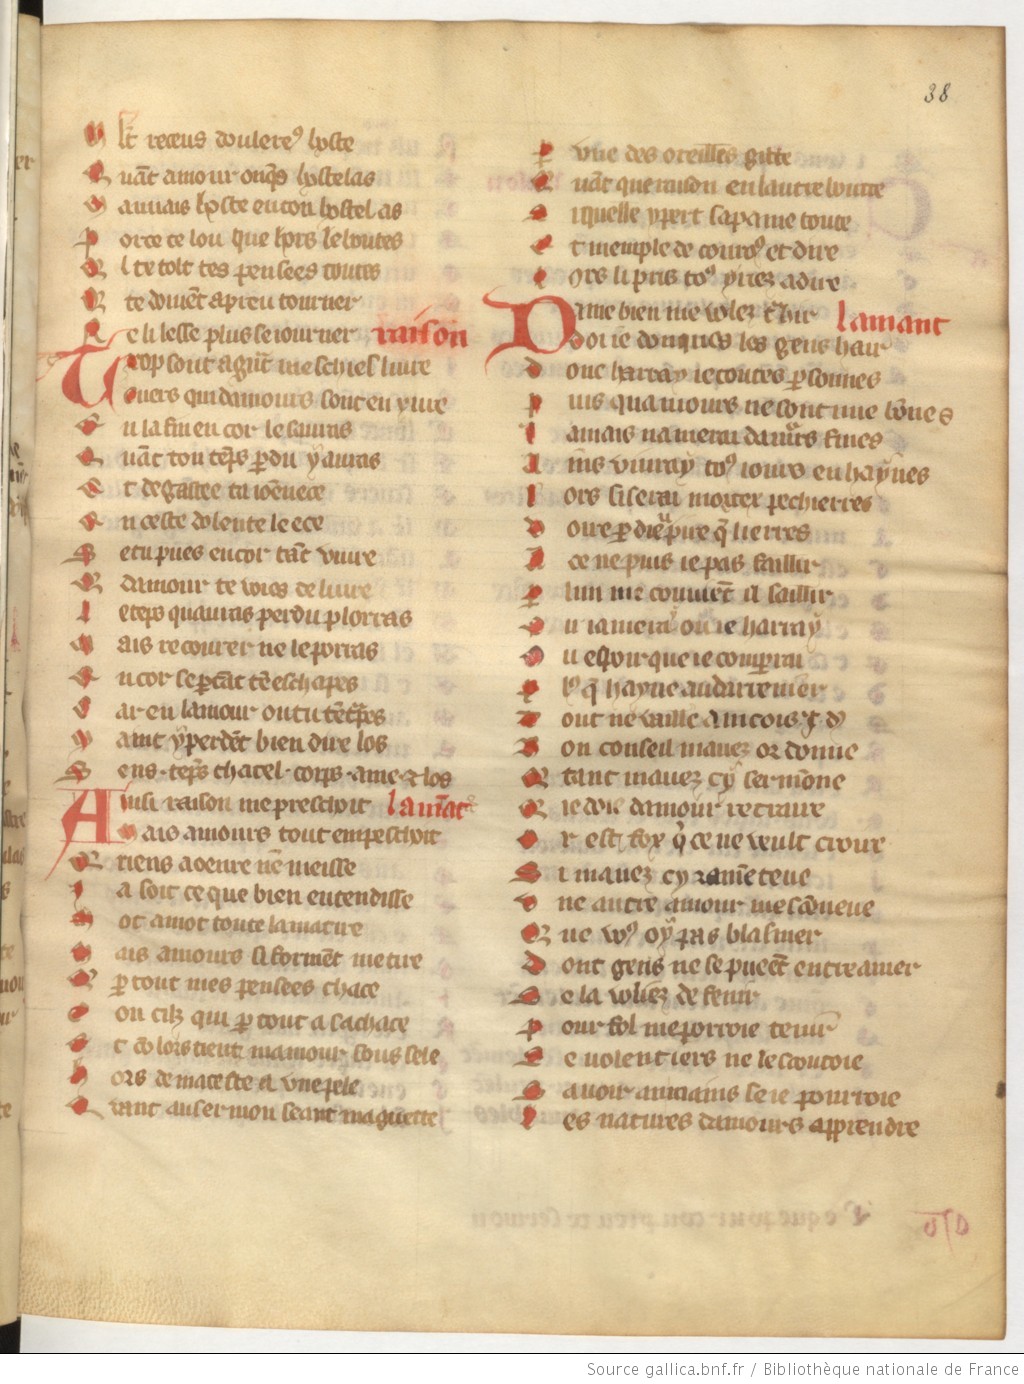 38
M lt̄ receus doulereꝰ hoste
Q uāt amour onqs hostelas
M auuais hoste en ton hostel as
P or ce te lou que hors le boutes
Q il te tolt tes pensees toutes
Q te doiuēt a preu tourner
N e li lesse plus seiourner raison
Trop sont a grāt meschief liure
C uers qui damours sont en yure
E n la fin encor le sauras
Q uāt ton tēps ꝑdu y auras
E t degastee ta iōuece
E n ceste dolente leece
S e tu pues encor tāt viure
Q damour te voies deliure
L e tēps quauras perdu plorras
M ais recourer ne le porras
E ncor se ꝑ tāt tē eschapes
C ar en lamour ou tu tētrapes
M aint y perdēt bien dire los
S ens · tēps chatel · corps · ame ⁊ los
Ainsi raison me preschoit lamāt
M ais amours tout empeschoit
Q riens a oeure nē meisse
I a soit ce que bien entendisse
M ot a mot toute la matire
M ais amours si formēt me tire
Q ꝑ tout mes pensees chace
C on cilz qui ꝑ tout a sa chace
E t tō lors tient mamour souz sele
H ors de ma teste a vne pele
Q uant au sermon seant maguette
P vne des oreilles giete
Q uāt que raison en lautre boute
S i quelle y pert sa paine toute
E t memple de courꝰ et dire
L ors li pris toꝰ yriez a dire
Dame bien me volez trahir lamant
Doi ie donques les gens hair
D onc harray ie toutes ꝑsonnes
P uis quamours ne sont mie bōnes
I amais namerai damꝰs fines
A ins viuray toꝰ iours en haynes
L ors si serai mortex pechierres
V oire ꝑ dieu pire q̄ lierres
A ce ne puis ie pas faillir
P lun me couuiēt il saillir
O u iamerai ou ie harray
O u espoir que ie comparrai
P lꝰ q̄ hayne au darrenier
T out ne vaille amours ȷ. dꝰ
B on conseil mauez or donne
Q tant mauez cy sermōne
Q ie doie damour retraire
O r est fox q̄ ce ne veult croire
S i mauez cy ramēteue
V ne autre amour mescōneue
Q ue voꝰ oy pas blasmer
D ont gens ne se pueēt entreamer
S e la voliez defenir
P our fol me porroie tenir
S e volentiers ne lescoutoie
S auoir au mains se ie pourroie
L es natures damours apprendre
Source gallica.bnf.fr / Bibliothèque nationale de France